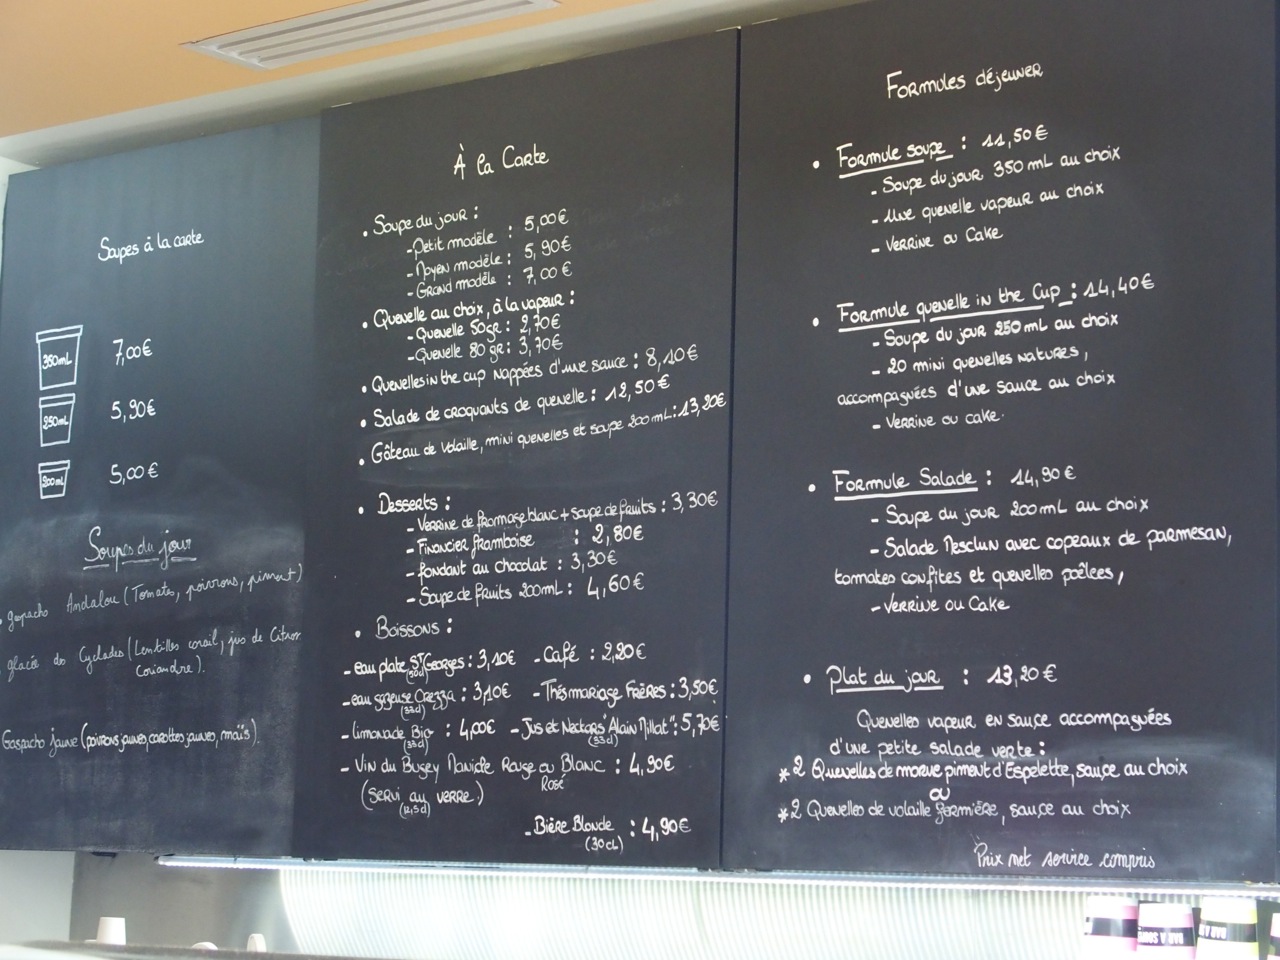 Soupes à la carte
350mL 7,00€
250mL 5,90€
200mL 5,00€
Soupes du jour
gaspacho Andalou (Tomates, poivrons, piment)
glacée des Cyclades (Lentilles corail, jus de Citron
Coriandre).
Gaspacho jaune (poivrons jaunes, carottes jaunes, maïs).
À la Carte
• Soupe du jour :
- Petit modèle : 5,00€
- Moyen modèle : 5,90€
- Grand modèle : 7,00€
• Quenelle au choix, à la vapeur :
- Quenelle 50gr : 2,70€
- Quenelle 80 gr : 3,70€
• Quenelles in the cup nappées d'une sauce : 8,10€
• Salade de croquants de quenelle : 12,50€
• Gâteau de volaille, mini quenelles et soupe 200mL : 13,20€
• Desserts :
- Verrine de fromage blanc + soupe de fruits : 3,30€
- Financier framboise : 2,80€
- fondant au chocolat : 3,30€
- Soupe de fruits 200mL : 4,60€
• Boissons :
- eau plate St Georges : 3,10€ - Café : 2,20€
- eau gazeuse Orezza : 3,10€ - Thés mariage Frères : 3,50€
(33cl)
- limonade Bio : 4,00€ - Jus et Nectars "Alain Millat" : 5,70€
(33cl) (33cl)
- Vin du Bugey Manicle Rouge ou Blanc : 4,90€
Rosé
(Servi au verre.)
(12,5cl)
- Bière Blonde : 4,90€
(30cL)
Formules déjeuner
• Formule soupe : 11,50€
- Soupe du jour 350 mL au choix
- Une quenelle vapeur au choix
- Verrine ou Cake
• Formule quenelle in the Cup : 14,40€
- Soupe du jour 250 mL au choix
- 20 mini quenelles natures,
accompagnées d'une sauce au choix
- Verrine ou cake.
• Formule Salade : 14,90€
- Soupe du jour 200mL au choix
- Salade Mesclun avec copeaux de parmesan,
tomates confites et quenelles poêlées,
- Verrine ou Cake
• Plat du jour : 13,20€
Quenelles vapeur en sauce accompagnées
d'une petite salade verte :
* 2 Quenelles de morue piment d'Espelette, sauce au choix
ou
* 2 Quenelles de volaille fermière, sauce au choix
Prix net service compris
BAR A